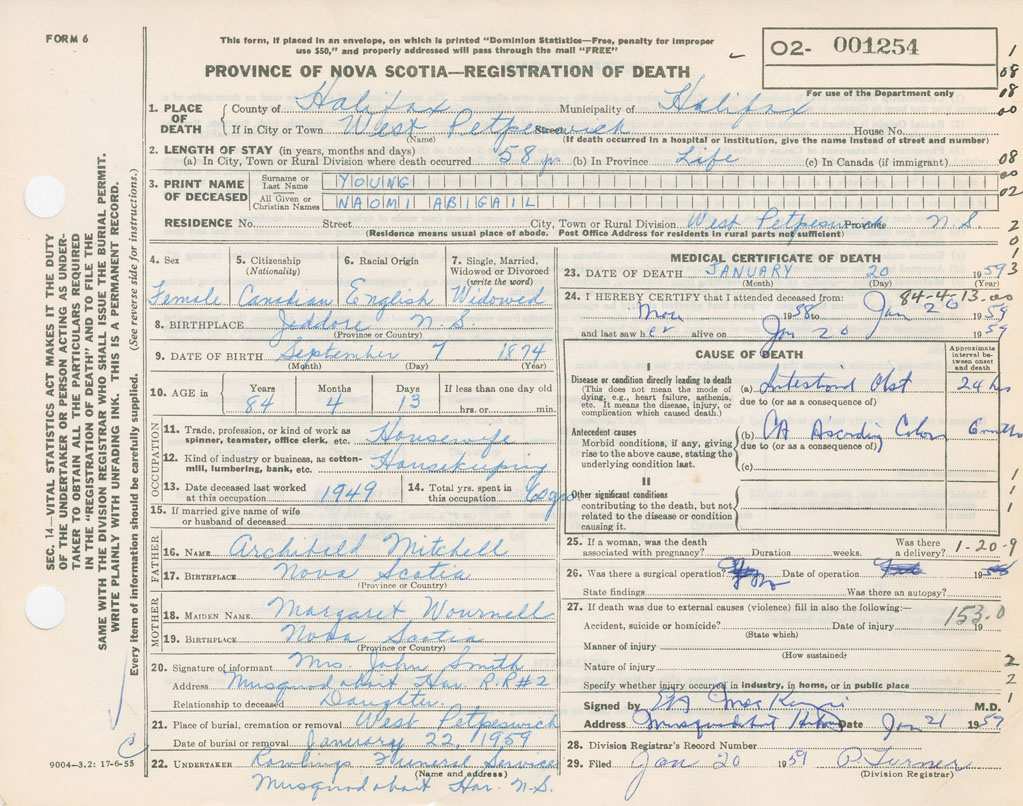 FORM 6
This form, if placed in an envelope, on which is printed "Dominion Statistics—Free, penalty for improper
use $50," and properly addressed will pass through the mail "FREE"
PROVINCE OF NOVA SCOTIA—REGISTRATION OF DEATH
02- 001254
For use of the Department only
1
08
08
00
08
00
02
2
0
1
3
SEC. 14—VITAL STATISTICS ACT MAKES IT THE DUTY
OF THE UNDERTAKER OR PERSON ACTING AS UNDER-
TAKER TO OBTAIN ALL THE PARTICULARS REQUIRED
IN THE "REGISTRATION OF DEATH" AND TO FILE THE
SAME WITH THE DIVISION REGISTRAR WHO SHALL ISSUE THE BURIAL PERMIT.
WRITE PLAINLY WITH UNFADING INK. THIS IS A PERMANENT RECORD.
Every item of information should be carefully supplied. (See reverse side for instructions.)
1. PLACE OF DEATH { County of Halifax Municipality of Halifax
If in City or Town West Petpeswick Street House No.
(Name) (If death occurred in a hospital or institution, give the name instead of street and number)
2. LENGTH OF STAY (in years, months and days)
(a) In City, Town or Rural Division where death occurred 58 yr (b) In Province Life (c) In Canada (if immigrant)
3. PRINT NAME OF DECEASED
Surname or Last Name YOUNG
All Given or Christian Names NAOMI ABIGAIL
RESIDENCE No. Street City, Town or Rural Division West Petpeswick Province N.S.
(Residence means usual place of abode. Post Office Address for residents in rural parts not sufficient)
4. Sex Female
5. Citizenship (Nationality) Canadian
6. Racial Origin English
7. Single, Married, Widowed or Divorced (write the word) Widowed
8. BIRTHPLACE Jeddore N.S.
(Province or Country)
9. DATE OF BIRTH September 7 1874
(Month) (Day) (Year)
10. AGE in Years 84 Months 4 Days 13 If less than one day old hrs. or min.
OCCUPATION
11. Trade, profession, or kind of work as spinner, teamster, office clerk, etc. Housewife
12. Kind of industry or business, as cotton-mill, lumbering, bank, etc. Housekeeping
13. Date deceased last worked at this occupation 1949
14. Total yrs. spent in this occupation 60 yrs
15. If married give name of wife or husband of deceased
FATHER
16. NAME Archibald Mitchell
17. BIRTHPLACE Nova Scotia
(Province or Country)
MOTHER
18. MAIDEN NAME Margaret Wournell
19. BIRTHPLACE Nova Scotia
(Province or Country)
20. Signature of informant Mrs. John Smith
Address Musquodoboit Har. R.R#2
Relationship to deceased Daughter
21. Place of burial, cremation or removal West Petpeswick
Date of burial or removal January 22, 1959
22. UNDERTAKER Rawlings Funeral Service
(Name and address)
Musquodoboit Har. N.S.
9004—3.2: 17-6-55
C
MEDICAL CERTIFICATE OF DEATH
23. DATE OF DEATH JANUARY 20 1959
(Month) (Day) (Year)
84-4-13.00
24. I HEREBY CERTIFY that I attended deceased from:
1958 to Jan 20 1959
and last saw her alive on Jan 20 1959
CAUSE OF DEATH
Approximate interval between onset and death
I
Disease or condition directly leading to death
This does not mean the mode of dying, e.g., heart failure, asthenia, etc. It means the disease, injury, or complication which caused death.)
(a) Intestional Obst 24 hrs
due to (or as a consequence of)
Antecedent causes
Morbid conditions, if any, giving rise to the above cause, stating the underlying condition last.
(b) CA Ascending Colon 6 months
due to (or as a consequence of)
(c)
II
Other significant conditions
contributing to the death, but not related to the disease or condition causing it.
1
1
1
25. If a woman, was the death associated with pregnancy? Duration weeks. Was there a delivery?
1-20-9
26. Was there a surgical operation? Date of operation 19
State findings Was there an autopsy?
27. If death was due to external causes (violence) fill in also the following:—
153.0
Accident, suicide or homicide? Date of injury 19
(State which)
Manner of injury
(How sustained)
Nature of injury
Specify whether injury occurred in industry, in home, or in public place
2
2
1
Signed by MacKenzie M.D.
Address Musquodoboit Harbour Date Jan 21 1959
28. Division Registrar's Record Number
29. Filed Jan 20 1959 P. Turner
(Division Registrar)